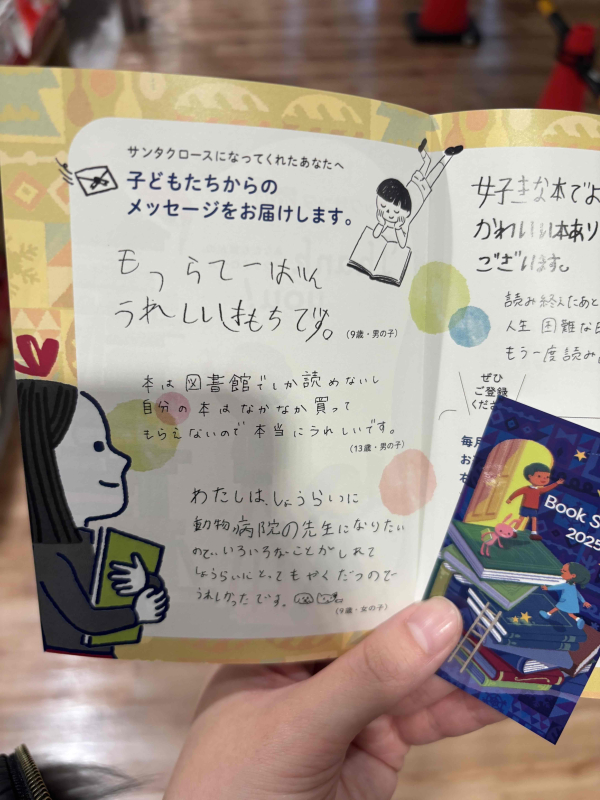 サンタクロースになってくれたあなたへ
子どもたちからの
メッセージをお届けします。
もうらてーはいん
うれしいきもちです。
(9歳・男の子)
本は図書館でしか読めないし
自分の本はなかなか買って
もらえないので本当にうれしいです。
(13歳・男の子)
わたしは、しょうらいに
動物病院の先生になりたい
ので、いろいろなことがしれて
しょうらいにとってもやくだつので
うれしかったです。
(9歳・女の子)
女子きな本でよ
かわいい本あり
ございます。
読み終えたあと
人生困難な
もう一度読み
ぜひ
ご登録
くださ
毎月
お
Book S
2025